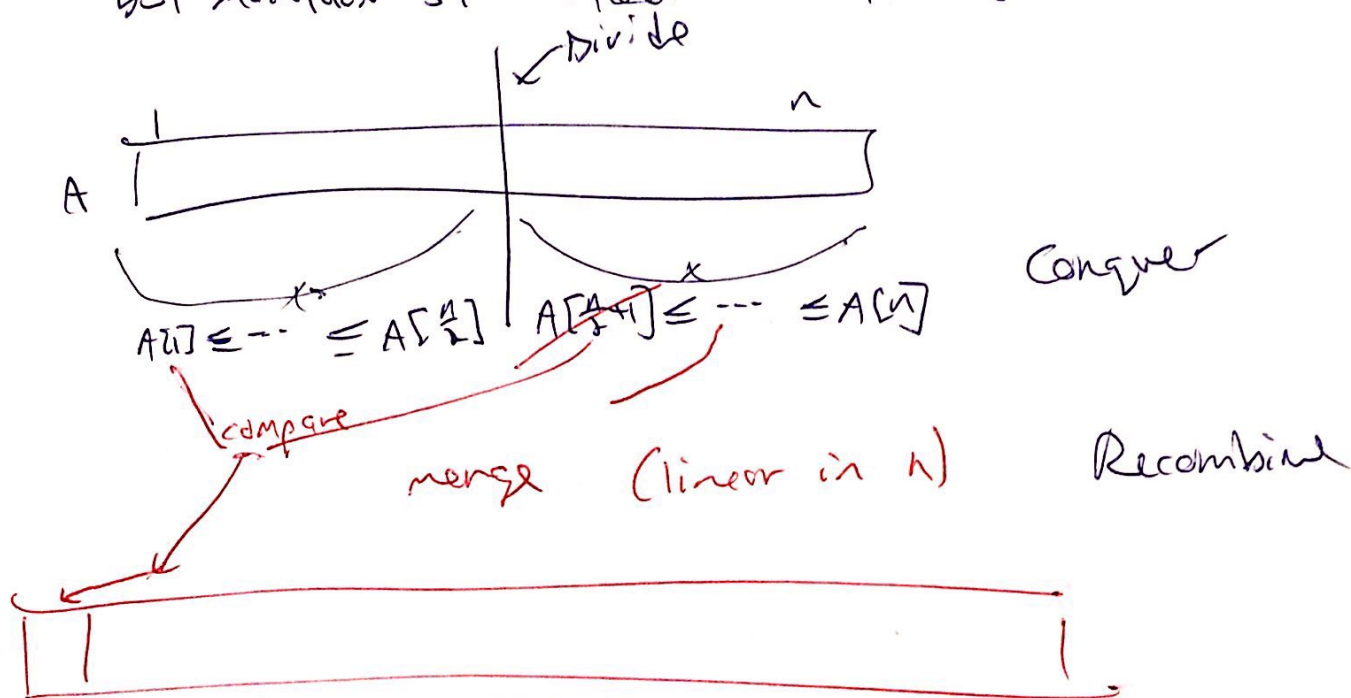 Divide
1 n
A
A[1] ≤ -- ≤ A[n/2] A[n/2+1] ≤ --- ≤ A[n] Conquer
compare
merge (linear in n) Recombine